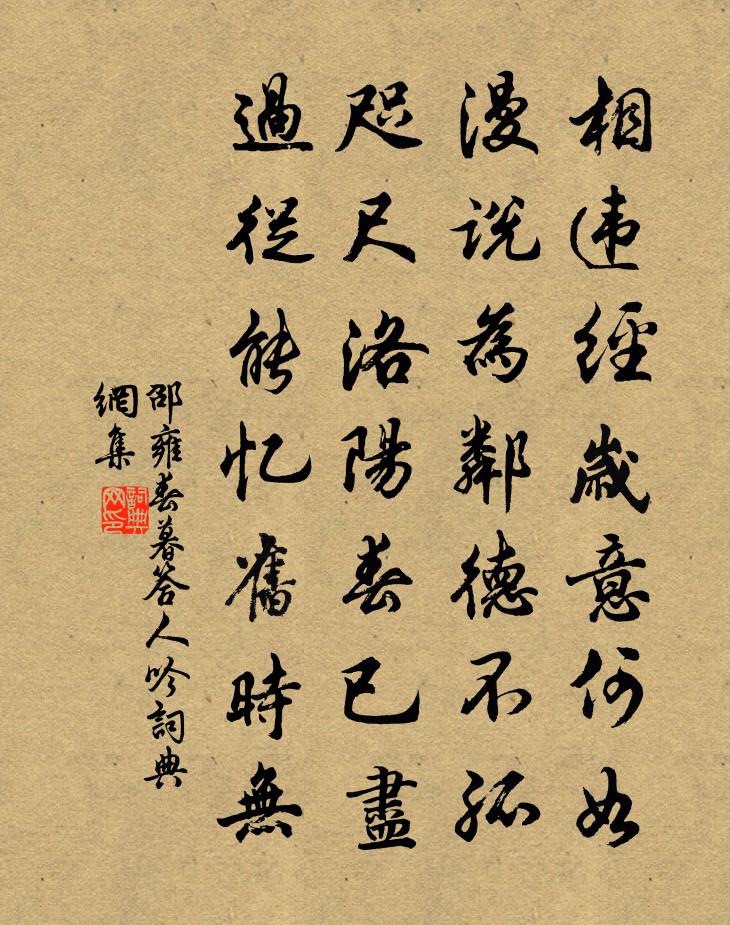 相违經歲意何如
漫説為鄰德不孤
咫尺洛陽春已盡
過從能忆舊時無
邵雍春暮答人吟詞典
網集
詞典
网印